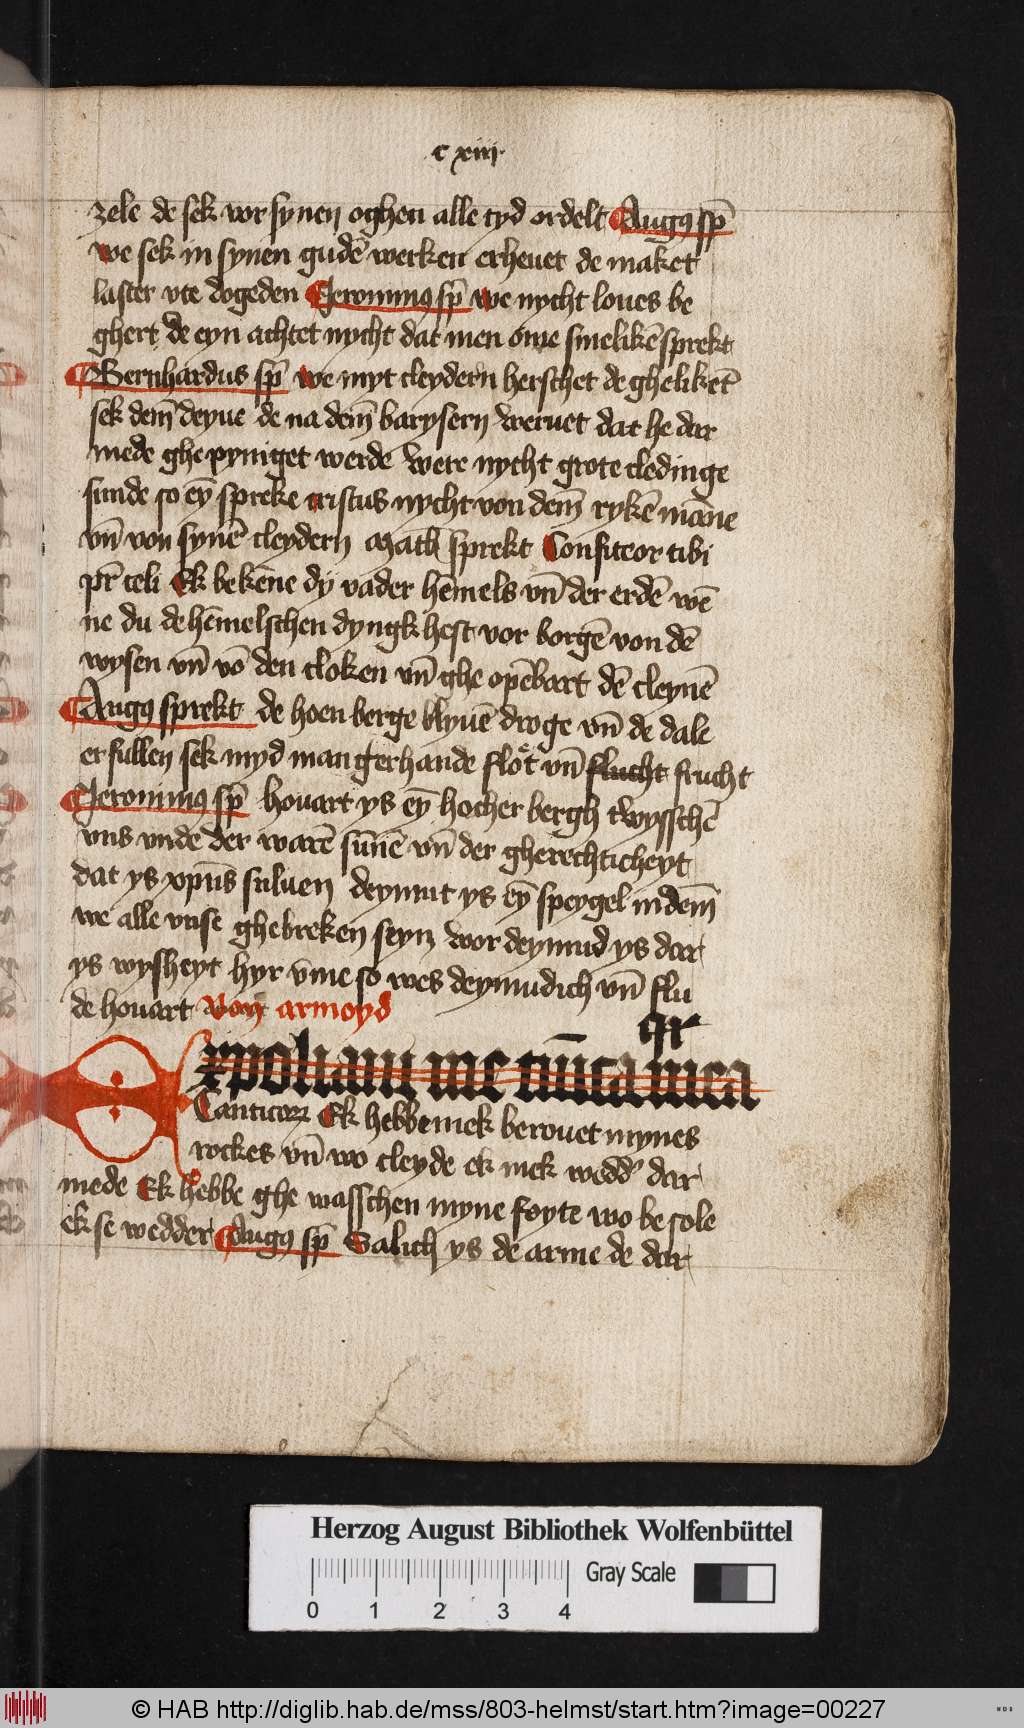 c xiij
zele de sek vor synen oghen alle tyd ordelt Augꝰ sp̄
we sek in synen gudē werken erheuet de maket
laster vte dogeden Jeronimꝰ sp̄ we nycht loues be
ghert de eyn achtet nycht dat men ome smelikē sprekt
Bernhardus sp̄ we myt cleydern herschet de ghelikēt
sek dem̄ deyue de na dem̄ barysern weruet dat he dar
mede ghe pyniget werde were nycht grote cledinge
sunde so eȳ spreke cristus nycht von dem̄ rykē mān̄e
vn̄ von synē cleydern Math sprekt Confiteor tibi
pr̄ celi Ek bekēne dy vader hēmels vn̄ der erdē wē
ne du de hēmelschen dyngk hest vor borgē von dē
wysen vn̄ vō den cloken vn̄ ghe opēbart dē cleynē
Augꝰ sprekt de hoen berge blyuē droge vn̄ de dale
er fullen sek myd mangerhande flot vn̄ flucht frucht
Jeronimꝰ sp̄ houart ys eȳ hocher bergh twysschē
vns vnde der warē sūnē vn̄ der gherechticheyt
dat ys xpūs suluen deymut ys eȳ speygel in dem̄
we alle vnse ghebreken seyn wor deymud ys dar
ys wysheyt hyr v̄me so wes deymudich vn̄ flu
de houart Von armoyd
Expoliaui me tūica mea
Canticorꝝ Ek hebbe mek berouet mynes
rockes vn̄ wo cleyde ek mek wedd' dar
mede Ek hebbe ghe wasschen myne foyte wo be sole
ek se wedder Augꝰ sp̄ Salich ys de arme de dar
Herzog August Bibliothek Wolfenbüttel
Gray Scale
0 1 2 3 4
© HAB http://diglib.hab.de/mss/803-helmst/start.htm?image=00227